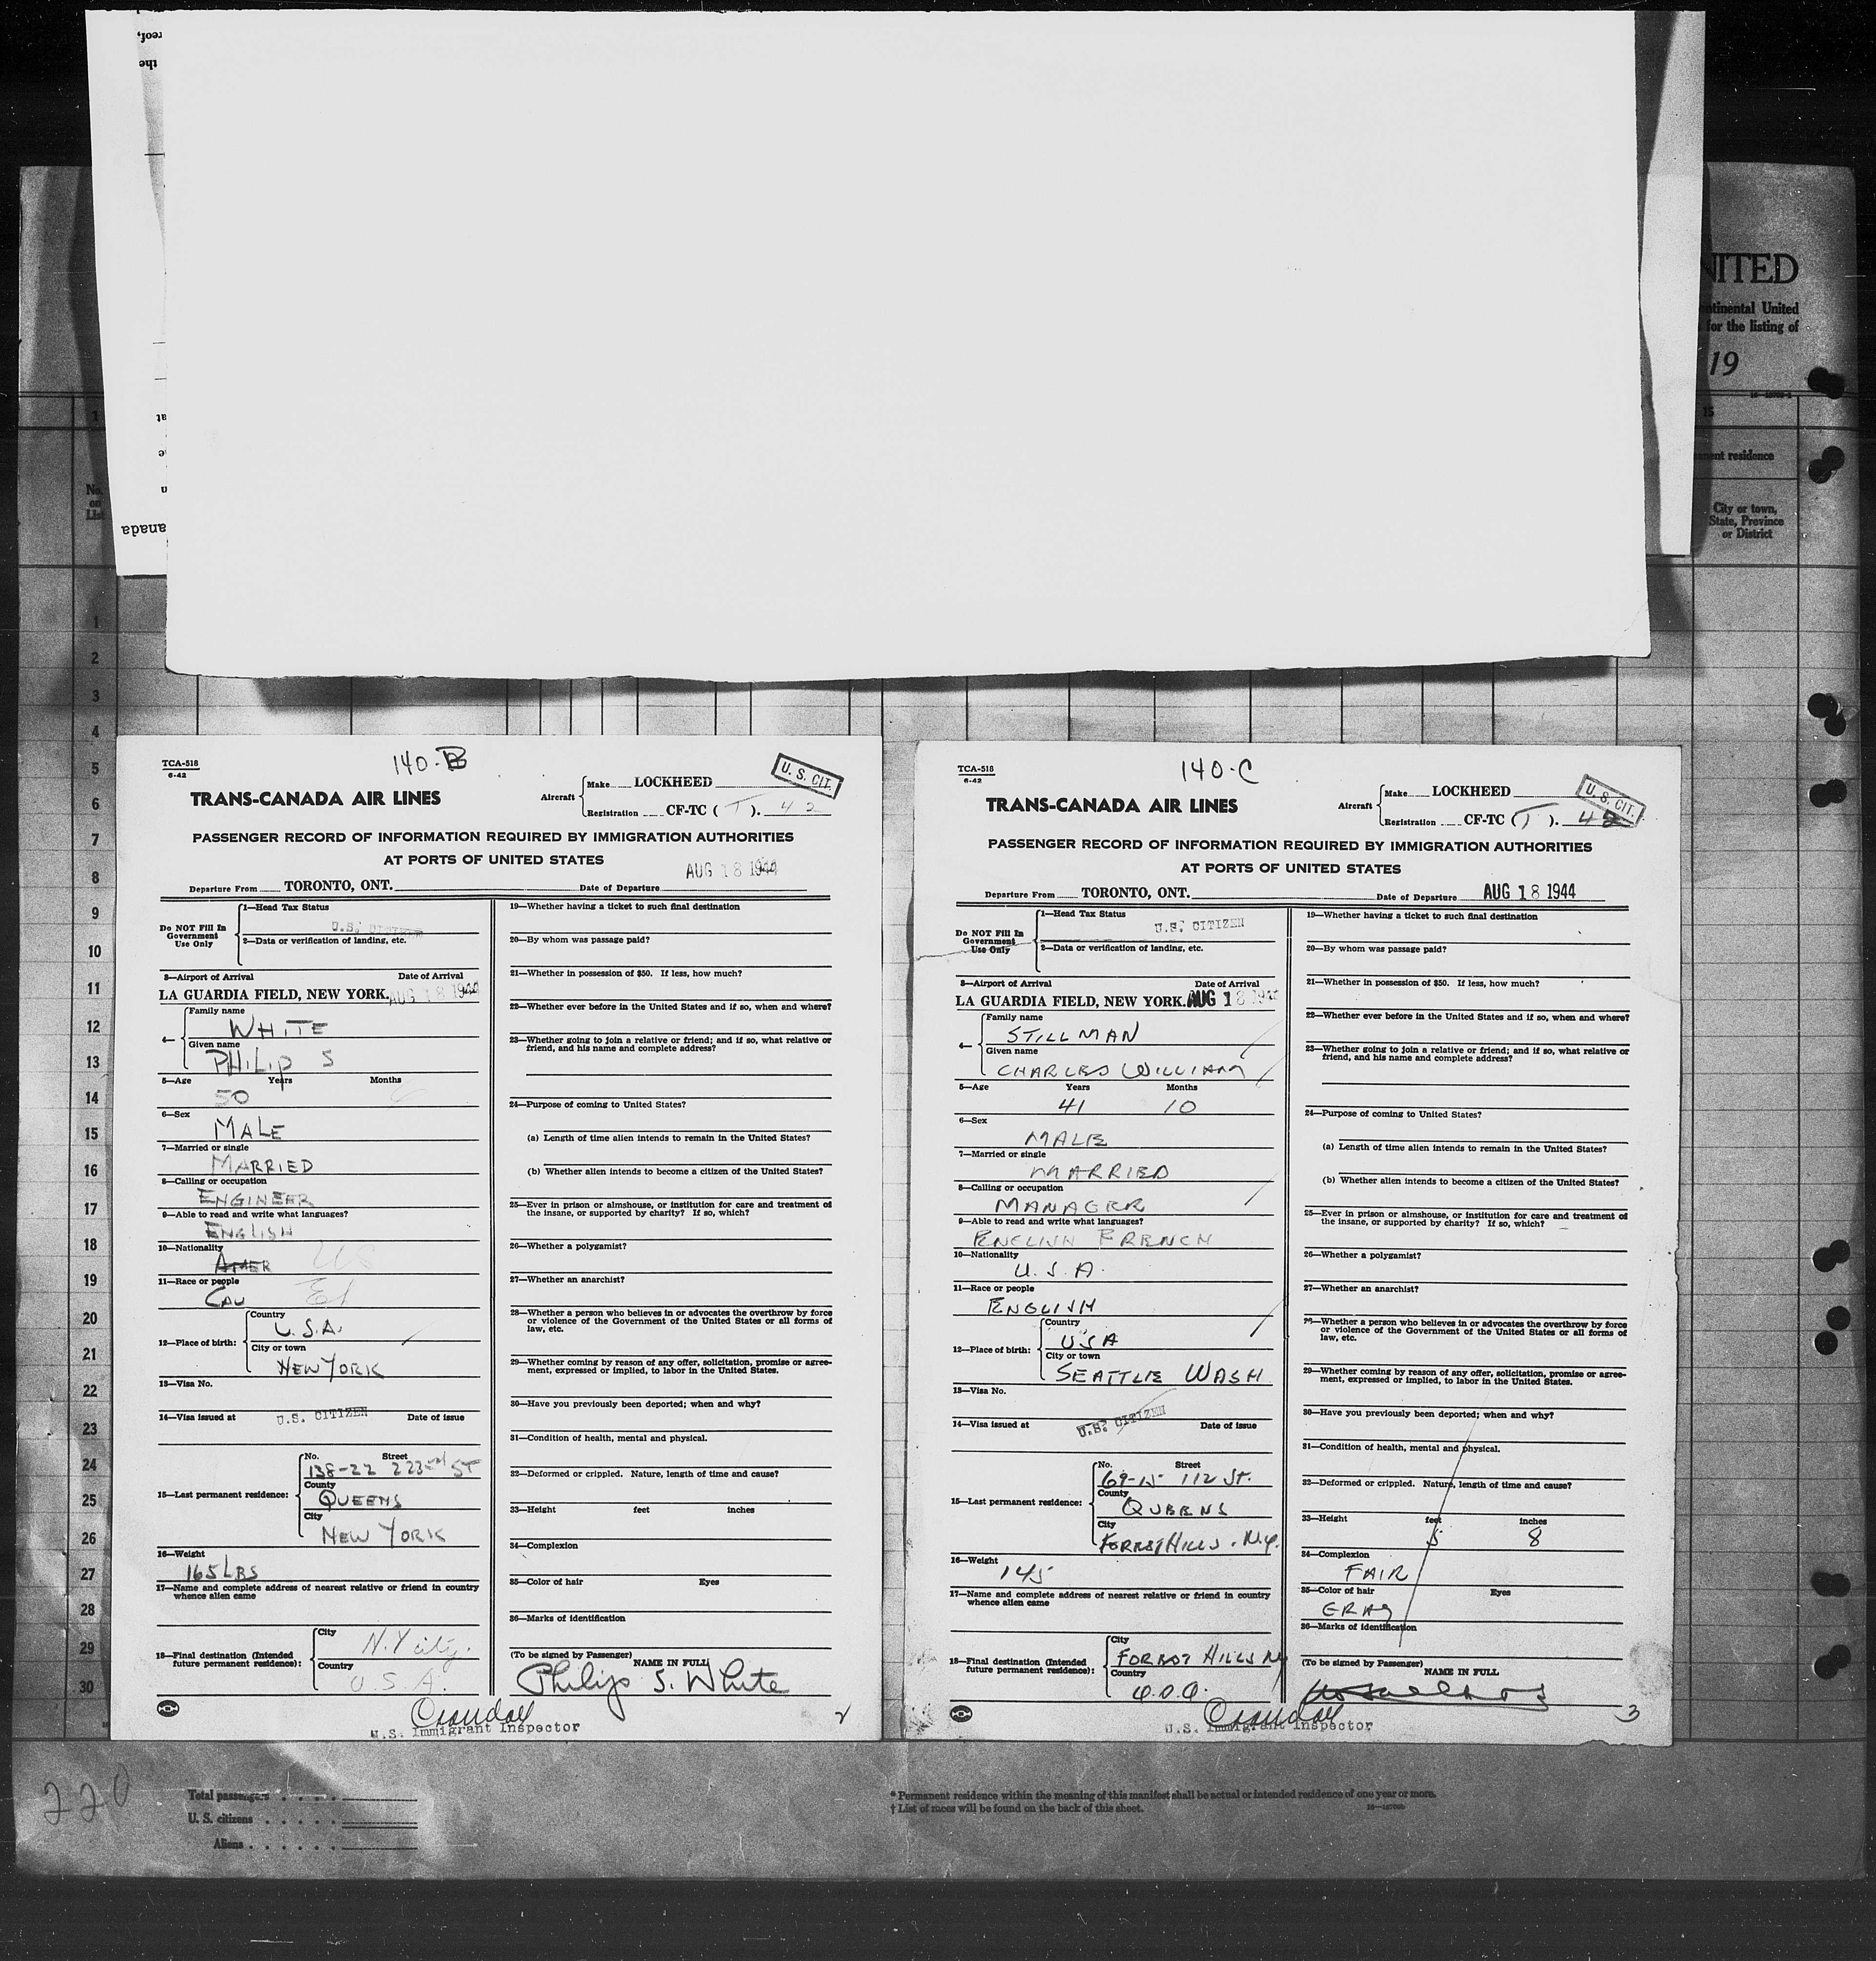 NITED
ntinental United
for the listing of
19
15
anent residence
City or town,
State, Province
or District
No.
on
List
anada
1
2
3
4
5
6
7
8
9
10
11
12
13
14
15
16
17
18
19
20
21
22
23
24
25
26
27
28
29
30
TCA-518
6-42
140-B
U. S. CIT.
TRANS-CANADA AIR LINES
Aircraft
Make LOCKHEED
Registration CF-TC ( T ). 42
PASSENGER RECORD OF INFORMATION REQUIRED BY IMMIGRATION AUTHORITIES
AT PORTS OF UNITED STATES
AUG 18 1944
Departure From TORONTO, ONT. Date of Departure
Do NOT Fill In
Government
Use Only
1—Head Tax Status
U.S. CITIZEN
2—Data or verification of landing, etc.
3—Airport of Arrival Date of Arrival
LA GUARDIA FIELD, NEW YORK. AUG 18 1944
4—
Family name
WHITE
Given name
PHILIP S
5—Age Years Months
50 6
6—Sex
MALE
7—Married or single
MARRIED
8—Calling or occupation
ENGINEER
9—Able to read and write what languages?
ENGLISH
10—Nationality
AMER US
11—Race or people
CAU
12—Place of birth:
Country
U.S.A.
City or town
NEW YORK
13—Visa No.
14—Visa issued at U.S. CITIZEN Date of issue
15—Last permanent residence:
No. Street
138-22 223rd ST
County
QUEENS
City
NEW YORK
16—Weight
165 LBS
17—Name and complete address of nearest relative or friend in country
whence alien came
18—Final destination (Intended
future permanent residence):
City
N.Y city.
Country
U.S.A.
19—Whether having a ticket to such final destination
20—By whom was passage paid?
21—Whether in possession of $50. If less, how much?
22—Whether ever before in the United States and if so, when and where?
23—Whether going to join a relative or friend; and if so, what relative or
friend, and his name and complete address?
24—Purpose of coming to United States?
(a) Length of time alien intends to remain in the United States?
(b) Whether alien intends to become a citizen of the United States?
25—Ever in prison or almshouse, or institution for care and treatment of
the insane, or supported by charity? If so, which?
26—Whether a polygamist?
27—Whether an anarchist?
28—Whether a person who believes in or advocates the overthrow by force
or violence of the Government of the United States or all forms of
law, etc.
29—Whether coming by reason of any offer, solicitation, promise or agree-
ment, expressed or implied, to labor in the United States.
30—Have you previously been deported; when and why?
31—Condition of health, mental and physical.
32—Deformed or crippled. Nature, length of time and cause?
33—Height feet inches
34—Complexion
35—Color of hair Eyes
36—Marks of identification
(To be signed by Passenger)
NAME IN FULL
Philip S. White
Crandall
U.S. Immigrant Inspector
2
TCA-518
6-42
140-C
U. S. CIT.
TRANS-CANADA AIR LINES
Aircraft
Make LOCKHEED
Registration CF-TC ( T ). 42
PASSENGER RECORD OF INFORMATION REQUIRED BY IMMIGRATION AUTHORITIES
AT PORTS OF UNITED STATES
Departure From TORONTO, ONT. Date of Departure AUG 18 1944
Do NOT Fill In
Government
Use Only
1—Head Tax Status
U.S. CITIZEN
2—Data or verification of landing, etc.
3—Airport of Arrival Date of Arrival
LA GUARDIA FIELD, NEW YORK. AUG 18 1944
4—
Family name
STILLMAN
Given name
CHARLES WILLIAM
5—Age Years Months
41 10
6—Sex
MALE
7—Married or single
MARRIED
8—Calling or occupation
MANAGER
9—Able to read and write what languages?
ENGLISH FRENCH
10—Nationality
U.S.A.
11—Race or people
ENGLISH
12—Place of birth:
Country
USA
City or town
SEATTLE WASH
13—Visa No.
14—Visa issued at U.S. CITIZEN Date of issue
15—Last permanent residence:
No. Street
69-15 112 St.
County
QUEENS
City
FOREST HILLS. N.Y.
16—Weight
145
17—Name and complete address of nearest relative or friend in country
whence alien came
18—Final destination (Intended
future permanent residence):
City
FOREST HILLS NY
Country
U.S.A.
19—Whether having a ticket to such final destination
20—By whom was passage paid?
21—Whether in possession of $50. If less, how much?
22—Whether ever before in the United States and if so, when and where?
23—Whether going to join a relative or friend; and if so, what relative or
friend, and his name and complete address?
24—Purpose of coming to United States?
(a) Length of time alien intends to remain in the United States?
(b) Whether alien intends to become a citizen of the United States?
25—Ever in prison or almshouse, or institution for care and treatment of
the insane, or supported by charity? If so, which?
26—Whether a polygamist?
27—Whether an anarchist?
28—Whether a person who believes in or advocates the overthrow by force
or violence of the Government of the United States or all forms of
law, etc.
29—Whether coming by reason of any offer, solicitation, promise or agree-
ment, expressed or implied, to labor in the United States.
30—Have you previously been deported; when and why?
31—Condition of health, mental and physical.
32—Deformed or crippled. Nature, length of time and cause?
33—Height feet inches
5 8
34—Complexion
FAIR
35—Color of hair Eyes
GRAY
36—Marks of identification
(To be signed by Passenger)
NAME IN FULL
Crandall
U.S. Immigrant Inspector
3
220
Total passengers
U. S. citizens
Aliens
* Permanent residence within the meaning of this manifest shall be actual or intended residence of one year or more.
† List of races will be found on the back of this sheet.